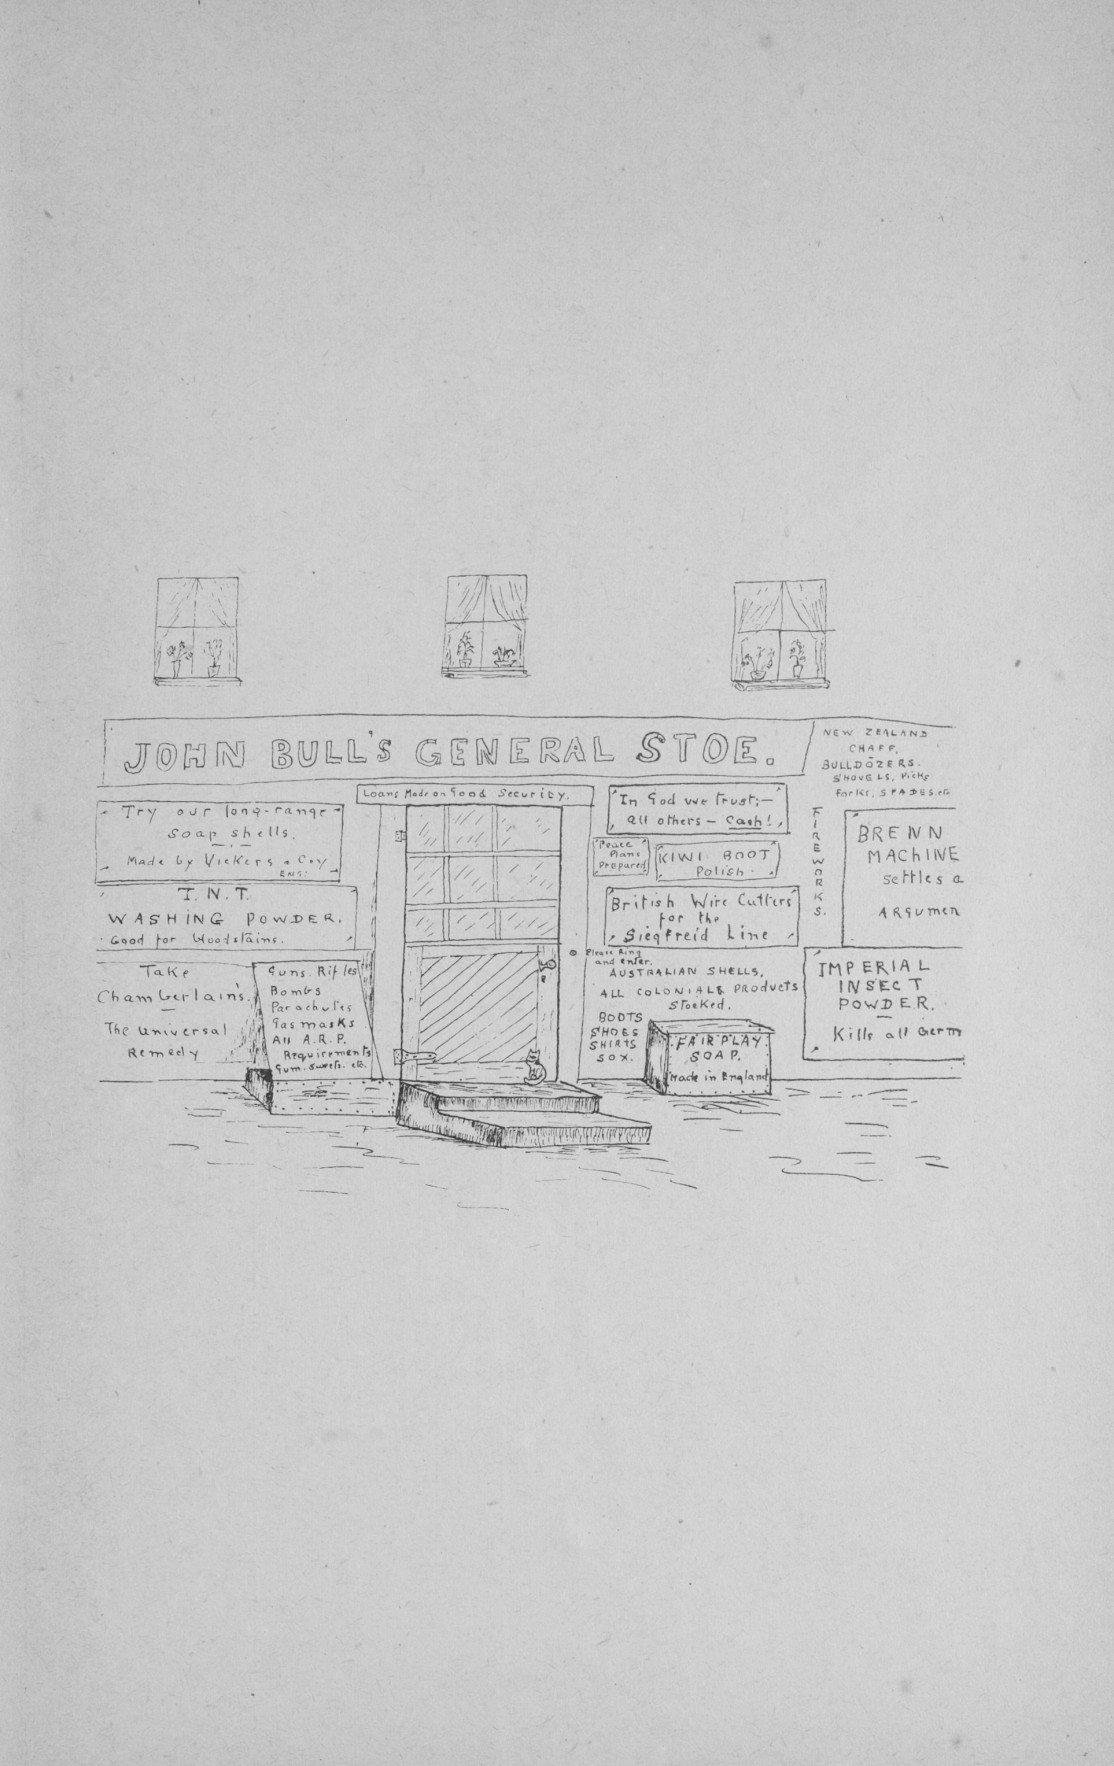 JOHN BULL'S GENERAL STOE.
NEW ZEALAND
CHAFF,
BULLDOZERS.
SHOVELS, Picks
Forks, SPADES.etc
Loans Made on Good Security.
Try our long-range
soap shells.
Made by Vickers & Coy
ENG:
T.N.T.
WASHING POWDER.
Good for bloodstains.
Take
Chamberlain's.
The Universal
Remedy
Guns. Rifles
Bombs
Parachutes
Gas masks
All A.R.P.
Requirements
Gum. Sweets. etc.
In God we trust;—
all others — Cash!
Peace
Plans
Prepared
KIWI BOOT
Polish.
British Wire Cutters
for the
Siegfreid Line
Please Ring
and enter.
AUSTRALIAN SHELLS,
ALL COLONIAL PRODUCTS
Stocked.
BOOTS
SHOES
SHIRTS
SOX.
FAIRPLAY
SOAP.
Made in England
FIREWORKS.
BRENN
MACHINE
Settles a
ARGUMEN
IMPERIAL
INSECT
POWDER.
Kills all Germ